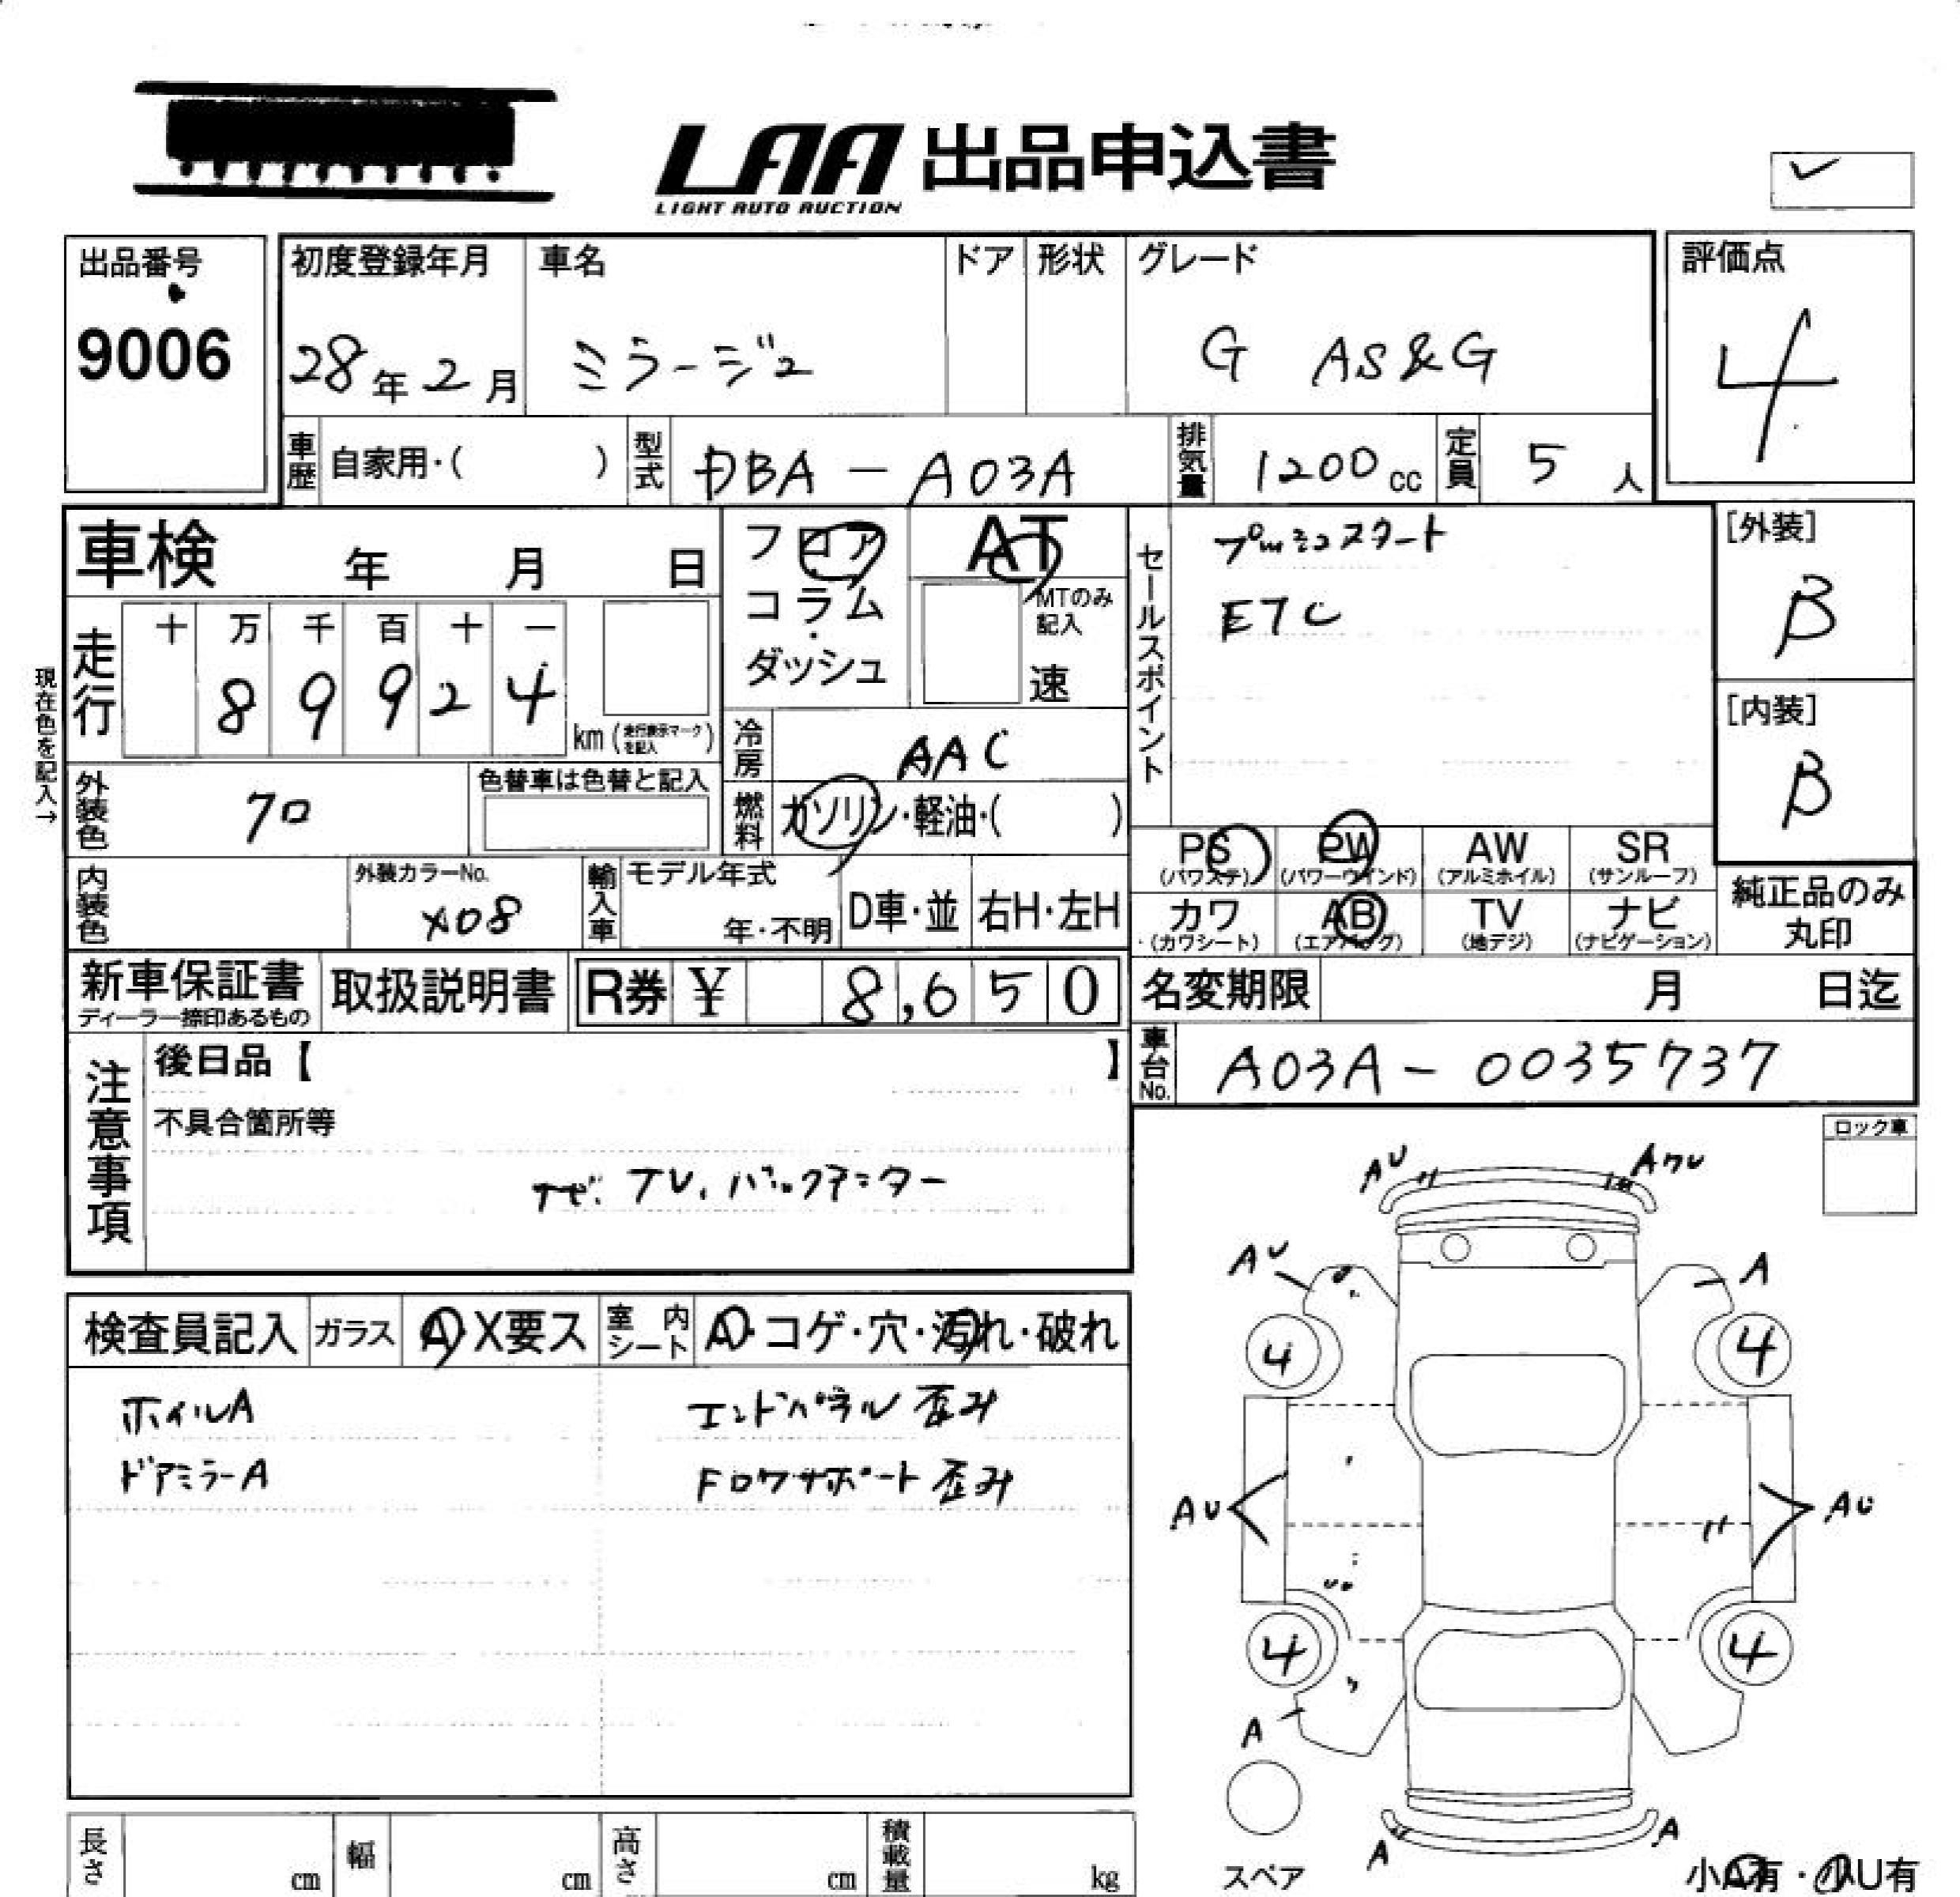 LAA 出品申込書
LIGHT AUTO AUCTION
出品番号
9006
初度登録年月
28年2月
車名
ミラージュ
ドア
形状
グレード
G AS&G
評価点
4
車歴 自家用・( )
型式 DBA-A03A
排気量 1200cc
定員 5人
車検 年 月 日
フロア
コラム
・
ダッシュ
AT
MTのみ
記入
速
セールスポイント
プッシュスタート
ETC
[外装]
B
[内装]
B
現在色を記入→
走行
十 万 千 百 十 一
8 9 9 2 4
km(走行表示マークを記入)
冷房 AAC
燃料 ガソリン・軽油・( )
外装色 クロ
色替車は色替と記入
内装色
外装カラーNo.
X08
輸入車
モデル年式
年・不明
D車・並
右H・左H
PS
(パワステ)
PW
(パワーウインド)
AW
(アルミホイル)
SR
(サンルーフ)
カワ
(カワシート)
AB
(エアバック)
TV
(地デジ)
ナビ
(ナビゲーション)
純正品のみ
丸印
新車保証書
ディーラー捺印あるもの
取扱説明書
R券 ¥ 8,650
名変期限 月 日迄
車台No. A03A-0035737
注意事項
後日品【 】
不具合箇所等
ナビ、TV、バックモニター
ロック車
検査員記入
ガラス A・X要ス
室内シート A・コゲ・穴・汚れ・破れ
ホイルA
ドアミラーA
エンドパネル歪み
Fロワサポート歪み
AU
AワU
AU
A
4
4
AU
AU
4
4
A
スペア
A
A
小A有・小U有
長さ cm
幅 cm
高さ cm
積載量 kg